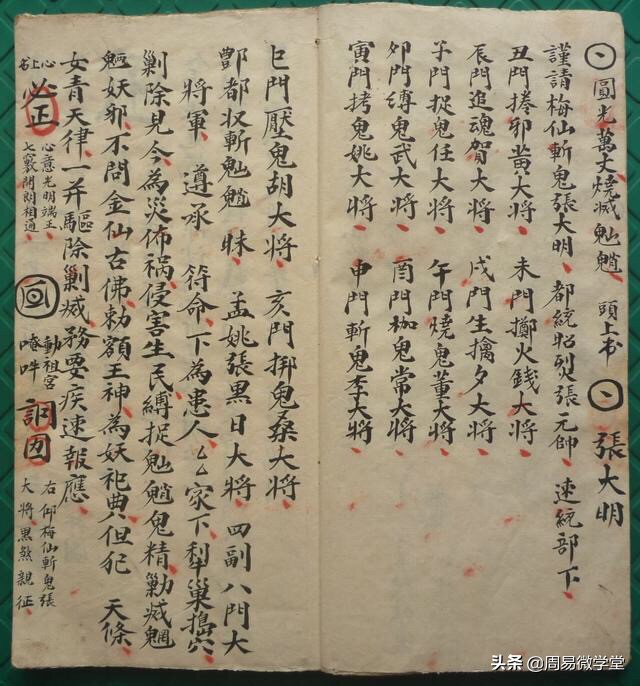 圓光萬丈燒滅魁魈 頭上书 張大明
謹請梅仙斬鬼張大明 都統昭烈張元帥 速統部下
丑門捲邪黃大将 未門擲火錢大将
辰門追魂賀大将 戌門生擒夕大将
子門捉鬼任大将 午門燒鬼董大将
夘門縛鬼武大将 酉門枷鬼常大将
寅門拷鬼姚大将 申門斬鬼李大将
巳門壓鬼胡大将 亥門挷鬼桑大将
酆都收斬魈 孟姚張黑日大将 四副八門大
将軍 遵承 符命 下為患人厶厶家下犁巢搗穴
剿除見今為災佈祸侵害生民縛捉魈鬼精勦滅魍
魎妖邪不問金仙古佛勅額王神為妖祀典但犯 天條
女青天律一并驅除剿滅務要疾速報應
心上书 正 心意光明端正
七竅開朗相通
動祖宮
唵吽
右仰梅仙斬鬼張
大将黑煞親征
头条 @周易微学堂